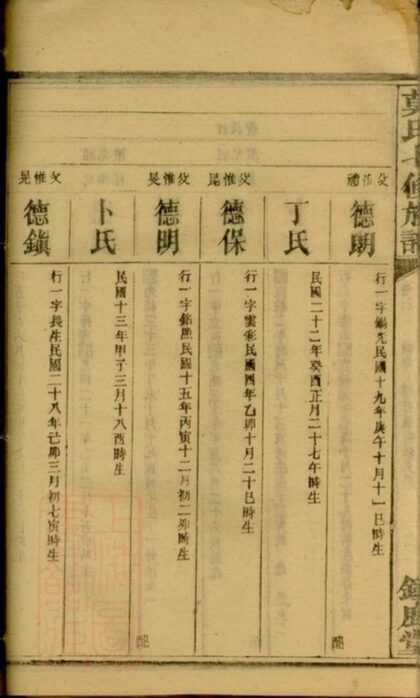 氏七修族譜
父惟禮
德朗
行一字錫光民國十九年庚午十月十一日巳時生
配
丁氏
民國二十二年癸酉正月二十七午時生
父惟昆
德保
行一字雲彩民國四年乙卯十月二十巳時生
父惟晃
德明
行一字 民國十五年丙寅十二月初二卯時生
配
卜氏
民國十三年甲子三月十八酉時生
父惟晃
德鎮
行一字長生民國二十八年己卯三月初七寅時生